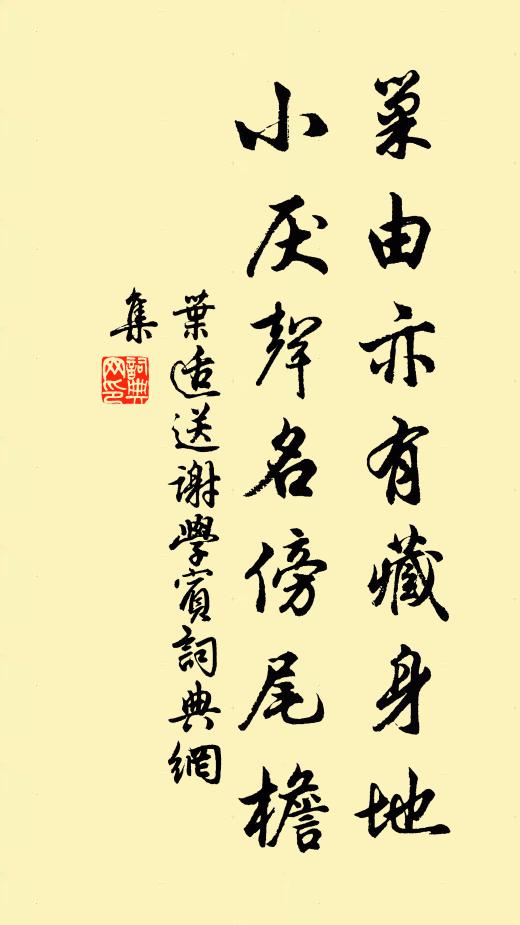 巢由亦有藏身地
小厌聲名傍尾檐
葉适送謝學賓詞典網
集
詞典網印